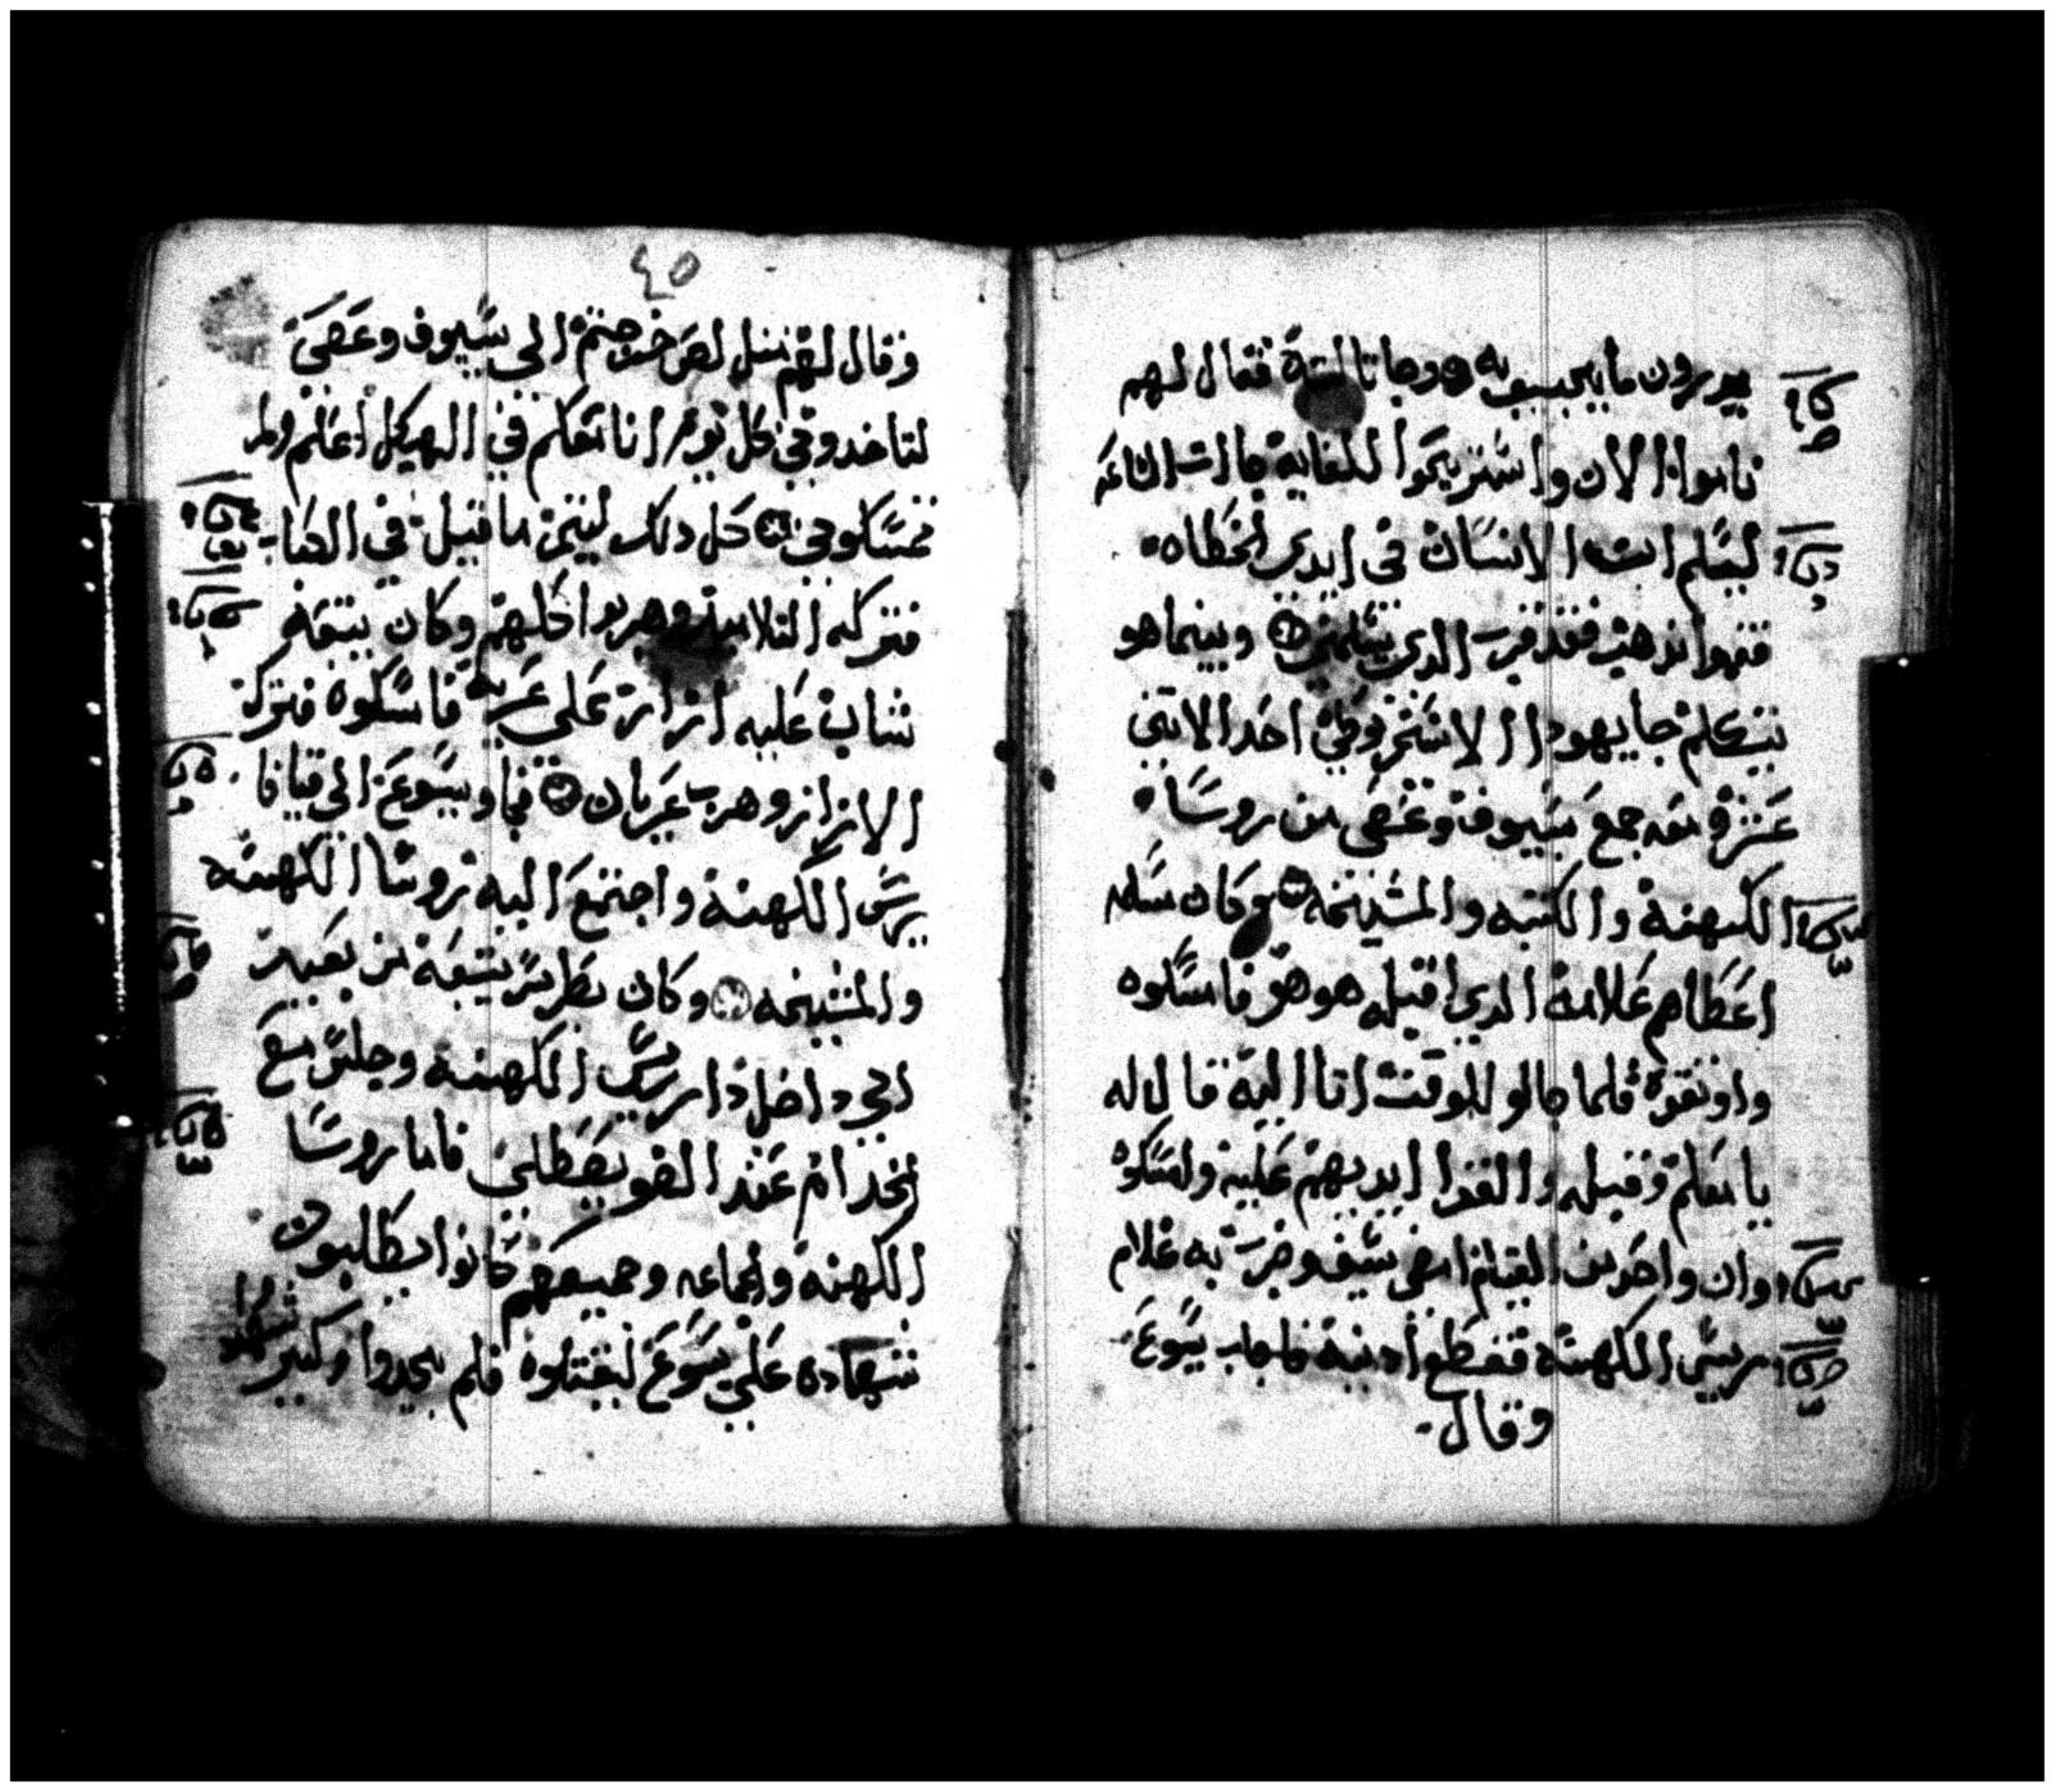 يدرون ما يجيبوه به وجا تالتة فقال لهم
ناموا الان واستريحوا للغاية جات الساعه
ليسلم ابن الانسان في ايدي الخطاه
قوموا نذهب فقد قرب الدي يسلمني وبينما هو
يتكلم جا يهودا الاسخريوطي احد الاتني
عشر ومعه جمع بسيوف وعصي من روسا
الكهنة والكتبه والمشيخه وكان مسلمه
اعطاهم علامة الدي اقبله هو هو فامسكوه
واوتقوه فلما جا للوقت اتا اليه قال له
يا معلم وقبله والقوا ايديهم عليه وامسكوه
وان واحد من القيام امضى سيفه وضرب به غلام
ريس الكهنة فقطع ادنه فاجاب يسوع
وقال
٤٥
وقال لهم متل لص خرجتم الي بسيوف وعصي
لتاخدوني كل يوم انا معكم في الهيكل اعلم ولم
تمسكوني كل دلك ليتم ما قيل في الكتاب
فتركه التلاميد وهربوا كلهم وكان يتبعه
شاب عليه ازار على عريه فامسكوه فترك
الازار وهرب عريان فجاو بيسوع الى قيافا
ريس الكهنة واجتمع اليه روسا الكهنه
والمشيخه وكان بطرس يتبعه من بعيد
الي داخل دار ريس الكهنه وجلس مع
الخدام عند الضو يصطلي فاما روسا
الكهنه والجماعه وجميعهم كانوا يطلبون
شهاده علي يسوع ليقتلوه فلم يجدوا وكتير شهدوا